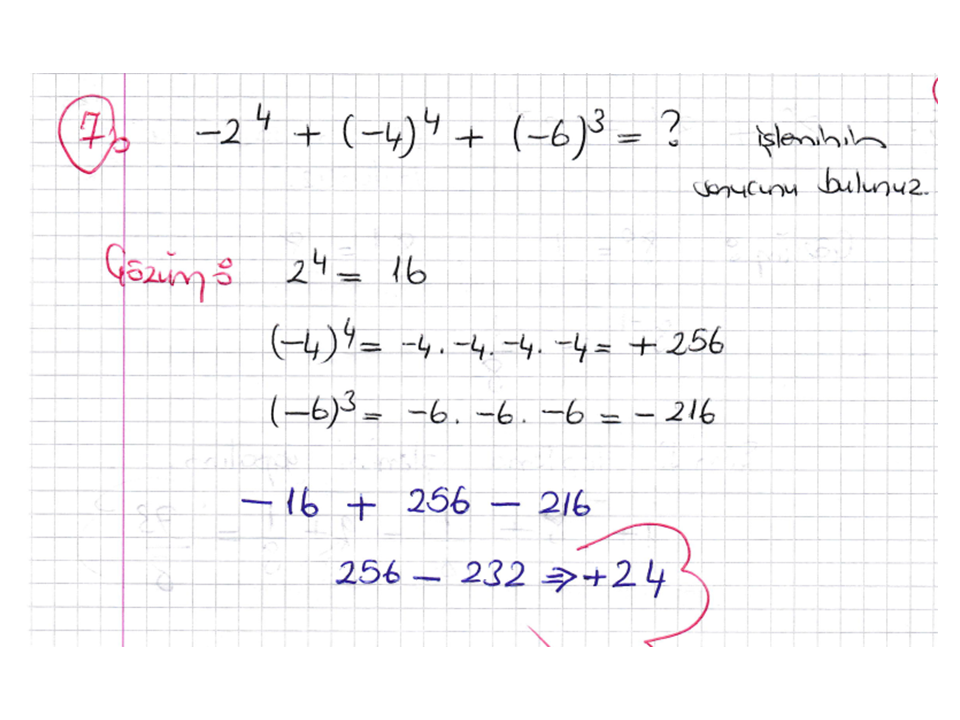 7. -2⁴ + (-4)⁴ + (-6)³ = ? işleminin
sonucunu bulunuz.
Çözüm: 2⁴ = 16
(-4)⁴ = -4 . -4 . -4 . -4 = + 256
(-6)³ = -6 . -6 . -6 = - 216
- 16 + 256 - 216
256 - 232 ⇒ +24